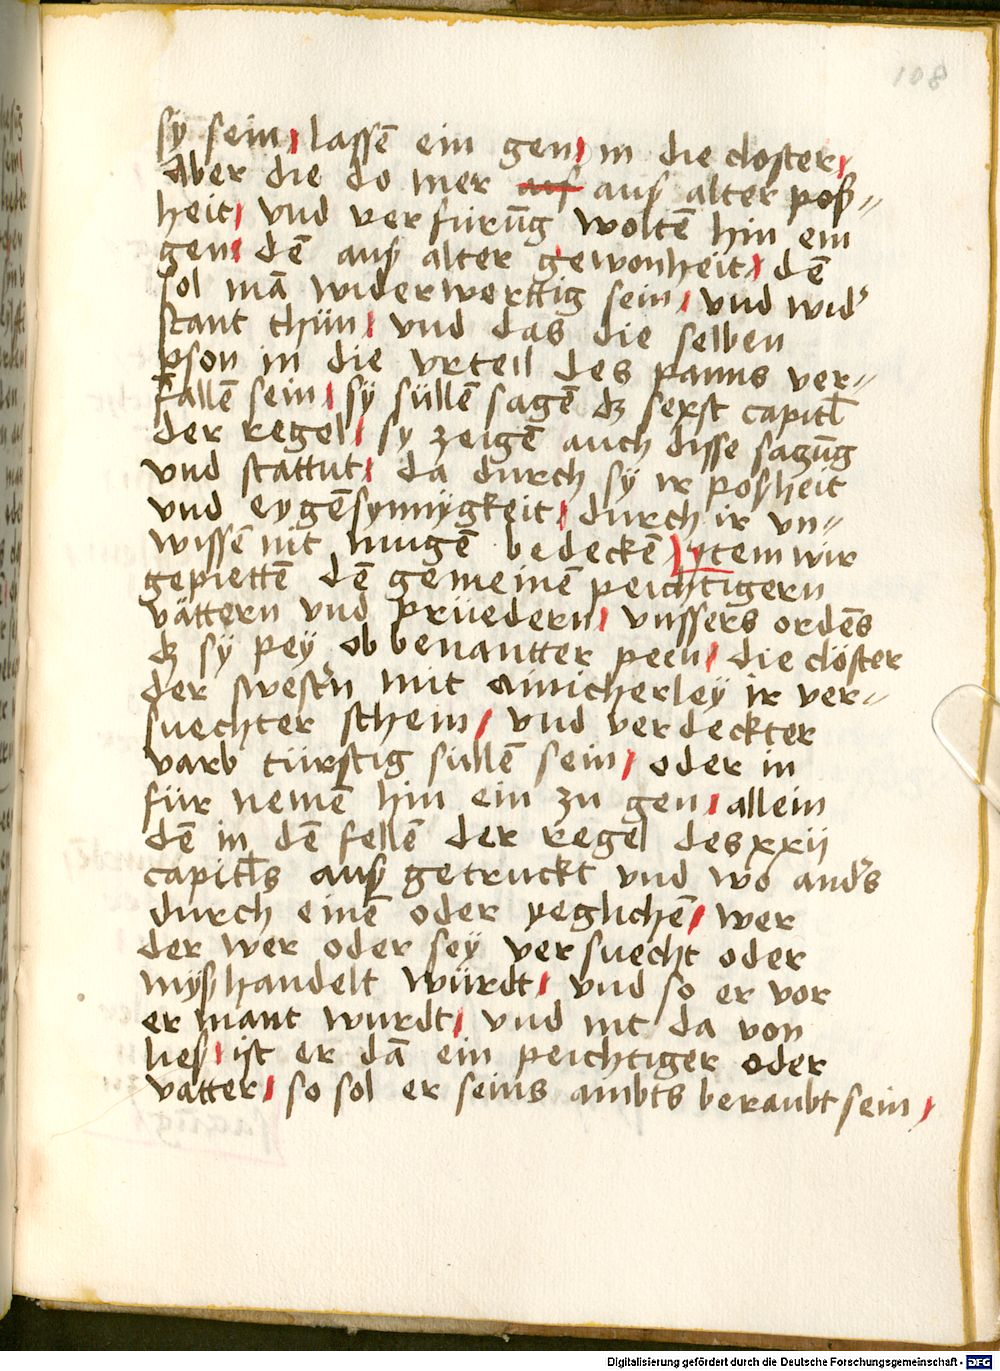 108
sÿ sein / lassē ein gen / in die closter /
Aber die do mer auf auß alter poß=
heit / vnd verfürūg woltē hin ein
gen / dē auß alter gewonheit / dē
sol mā widerwerttig sein / vnd wid'
stant thün / vnd das die selben
pson in die vrteil des panns ver=
fallē sein / sÿ süllē sagē dʒ sexst capitl̄
der regel / sy zeigē auch disse sagūg
vnd stattut / da durch sÿ ir poßheit
vnd eygēsynnÿgkeit / durch ir vn=
wissē nit mugē bedeckē / ytem wir
gepiettē dē gemeinē peichtigern
vättern vnd prüedern / vnssers ordēs
dʒ sÿ peÿ ob benantter peen / die clöster
der swest'n mit ainicherleÿ ir ver=
suechter schein / vnd verdeckter
varb türstig süllē sein / oder in
für nemē hin ein zu gen / allein
dē in dē fellē der regel des xxij
capitl̄s auß getruckt vnd wo and's
durch einē oder yeglichē / wer
der wer oder seÿ versuecht oder
mÿßhandelt würdt / vnd so er vor
er mant wurdt / vnd nit da von
ließ / ist er dā ein peichtiger oder
vatter / so sol er seins ambts beraubt sein /
Digitalisierung gefördert durch die Deutsche Forschungsgemeinschaft - DFG